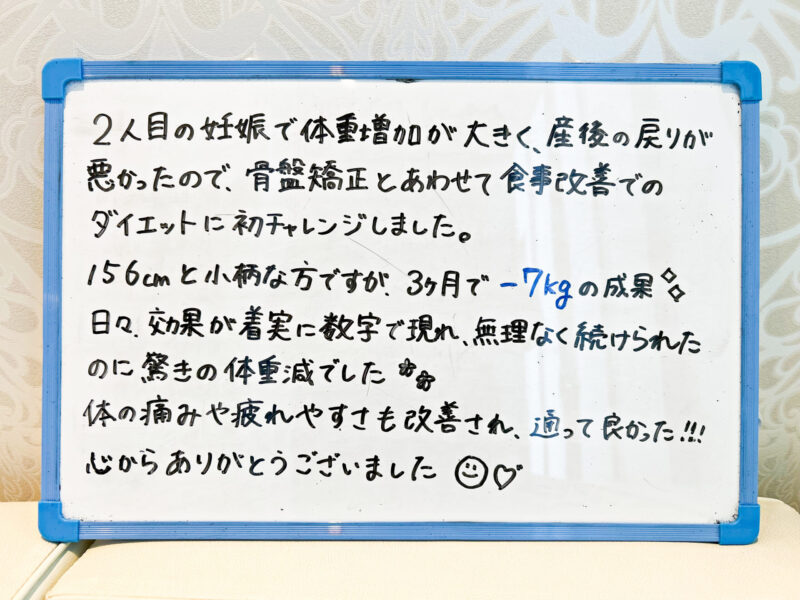 2人目の妊娠で体重増加が大きく、産後の戻りが
悪かったので、骨盤矯正とあわせて食事改善での
ダイエットに初チャレンジしました。
156cmと小柄な方ですが、3ヶ月で-7kgの成果
日々、効果が着実に数字で現れ、無理なく続けられた
のに驚きの体重減でした
体の痛みや疲れやすさも改善され、通って良かった!!!
心からありがとうございました